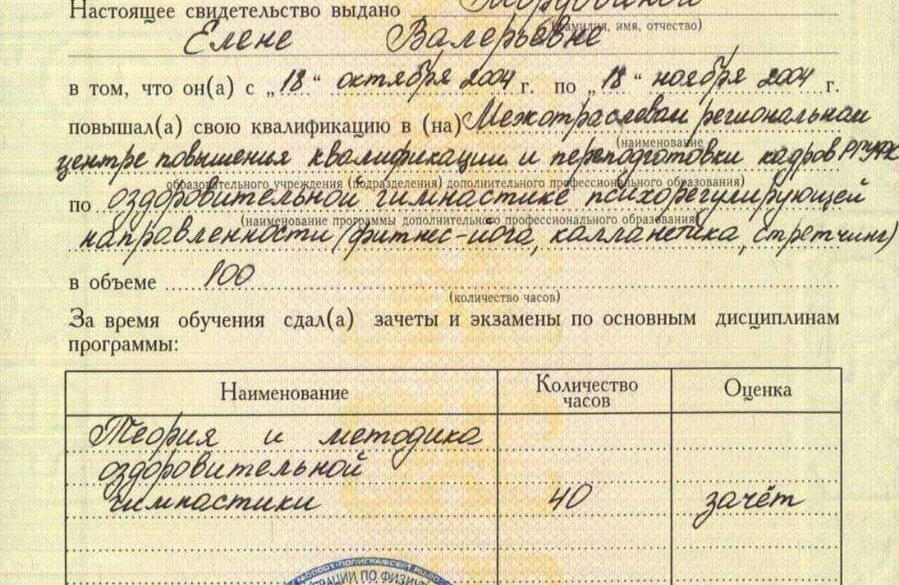 Настоящее свидетельство выдано
(фамилия, имя, отчество)
Елене Валерьевне
в том, что он(а) с „18“ октября 2004 г. по „18“ ноября 2004 г.
повышал(а) свою квалификацию в (на) Межотраслевом региональном
(наименование
центре повышения квалификации и переподготовки кадров РГУФК
образовательного учреждения (подразделения) дополнительного профессионального образования)
по оздоровительной гимнастике психорегулирующей
(наименование программы дополнительного профессионального образования)
направленности (фитнес-йога, калланетика, стретчинг)
в объеме 100
(количество часов)
За время обучения сдал(а) зачеты и экзамены по основным дисциплинам
программы:
Наименование Количество часов Оценка
Теория и методика
оздоровительной
гимнастики 40 зачёт
ПО ФИЗИЧ